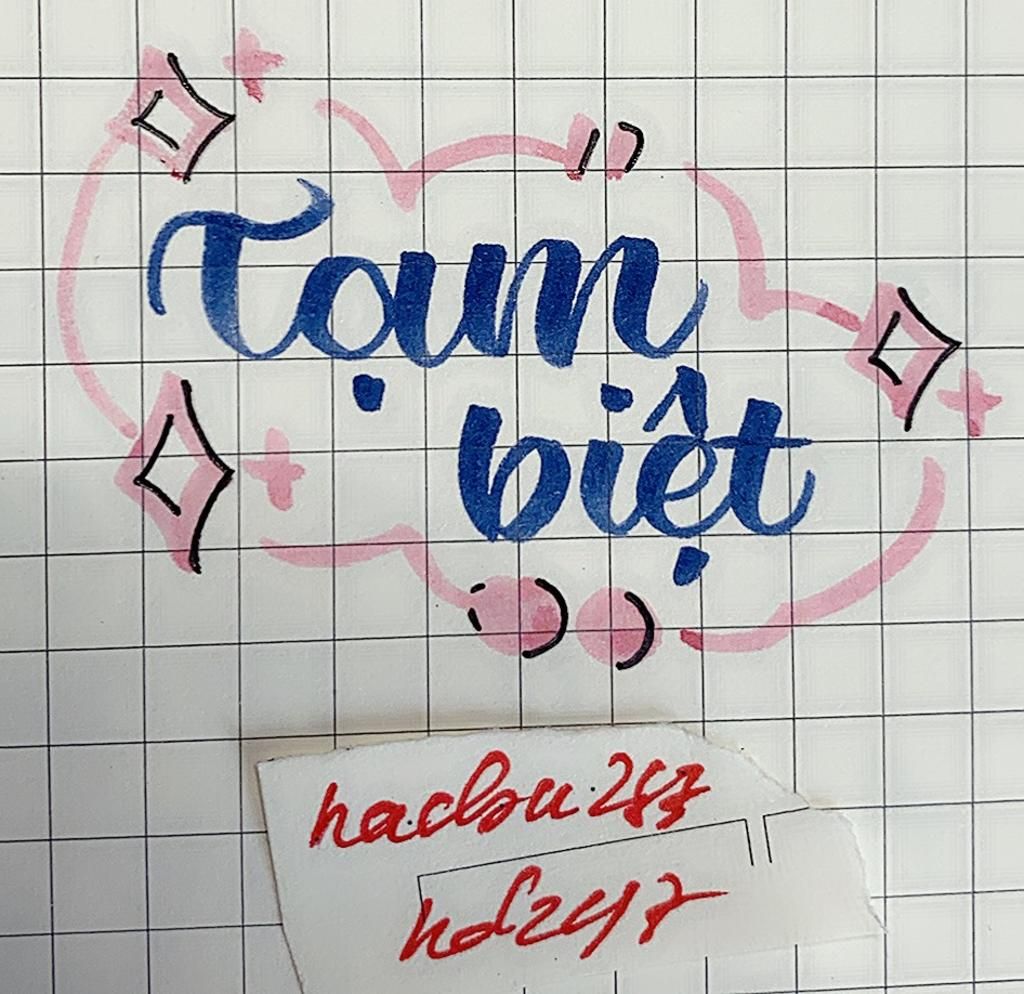 Tạm
biệt
hacbu287
hd247